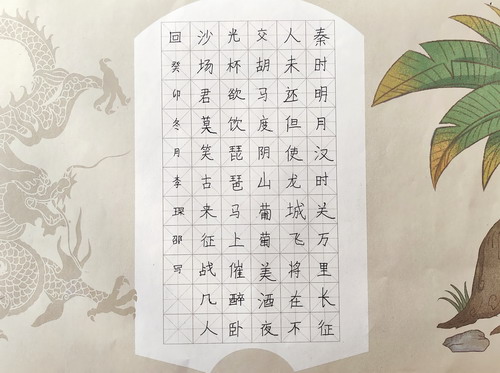 秦时明月汉时关万里长征
人未还但使龙城飞将在不
交胡马度阴山葡萄美酒夜
光杯欲饮琵琶马上催醉卧
沙场君莫笑古来征战几人
回癸卯冬月李邵写